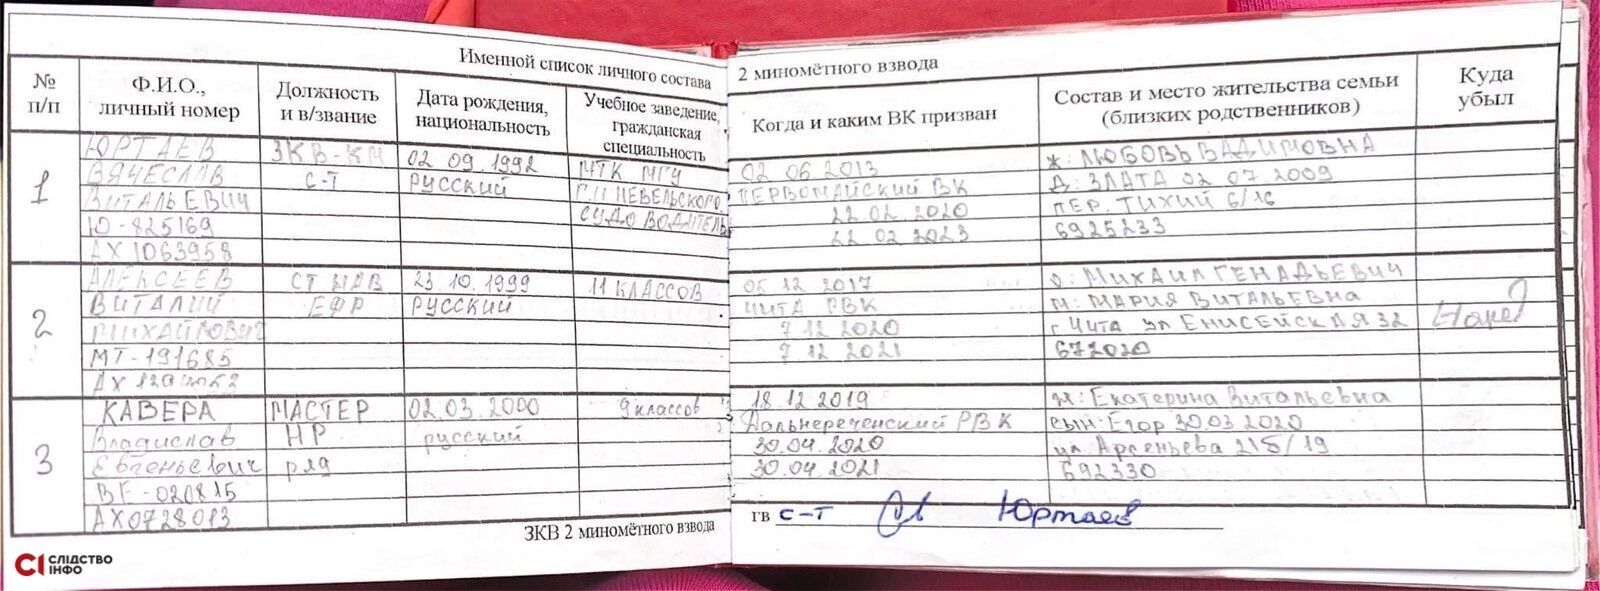 Именной список личного состава 2 миномётного взвода
№ п/п
Ф.И.О., личный номер
Должность и в/звание
Дата рождения, национальность
Учебное заведение, гражданская специальность
Когда и каким ВК призван
Состав и место жительства семьи (близких родственников)
Куда убыл
1
ЮРТАЕВ
ВЯЧЕСЛАВ
ВИТАЛЬЕВИЧ
Ю-825169
АХ 1063958
ЗКВ-КМ
С-Т
02 09.1992
РУССКИЙ
МТК МГУ
Г.И НЕВЕЛЬСКОГО
СУДОВОДИТЕЛЬ
02 06.2013
ПЕРВОМАЙСКИЙ ВК
22 02.2020
22 02 2023
Ж: ЛЮБОВЬ ВАДИМОВНА
Д: ЗЛАТА 02 07 2009
ПЕР. ТИХИЙ 6/16
6925233
2
АЛЕКСЕЕВ
ВИТАЛИЙ
МИХАЙЛОВИЧ
МТ-191685
АХ
СТ НАВ
ЕФР
23.10.1999
РУССКИЙ
11 КЛАССОВ
05 12 2017
ЧИТА РВК
7 12 2020
7 12 2021
О: МИХАИЛ ГЕНАДЬЕВИЧ
М: МАРИЯ ВИТАЛЬЕВНА
г ЧИТА УЛ ЕНИСЕЙСКАЯ 32
672020
3
КАВЕРА
Владислав
Евгеньевич
ВЕ-020815
АХ0728013
МАСТЕР
НР
ряд
02.03.2000
русский
9 классов
18.12.2019
Дальнереченский РВК
30.04.2020
30.04.2021
Екатерина Витальевна
сын: Егор 30.03.2020
ул. Арсеньева 215/19
692330
ЗКВ 2 миномётного взвода
гв с-т Юртаев
СЛІДСТВО
ІНФО